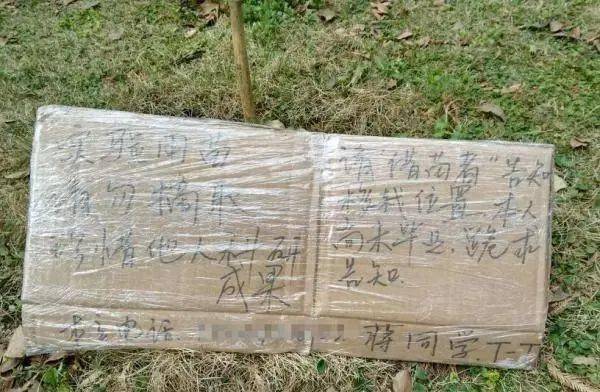 实验用苗
请勿摘取
珍惜他人科研
成果
请“借苗者”告知
移栽位置,本人
尚未毕业,跪求
告知.
苗主电话: 蒋同学.T-T